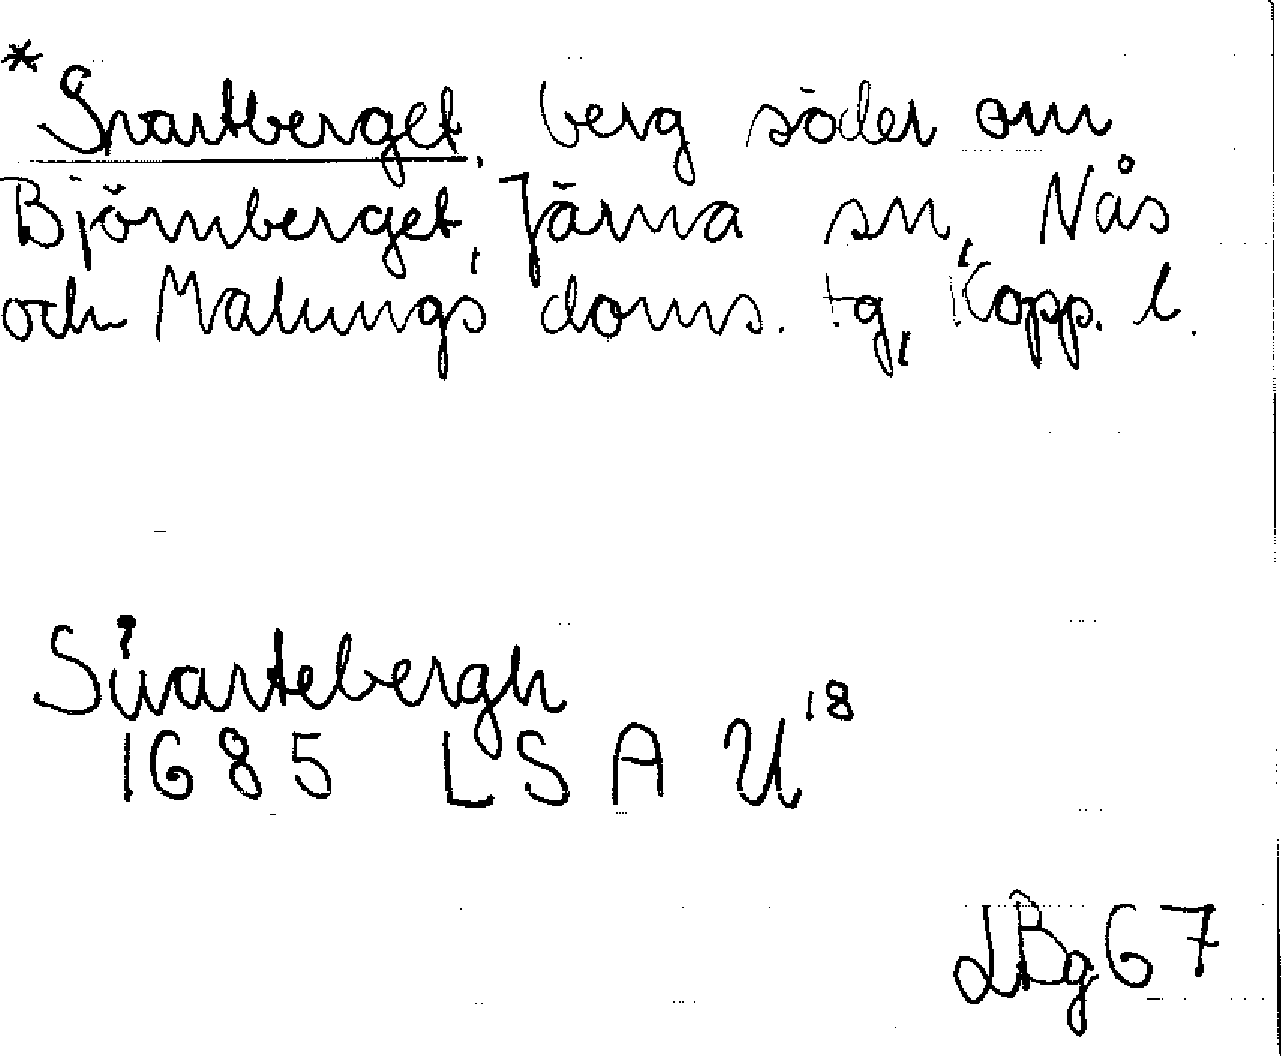 * Svartberget, berg söder om
Björnberget, Järna sn, Nås
och Malungs doms. tg, Kopp. l.
Swartebergh
1685 LSA U18
LBg 67